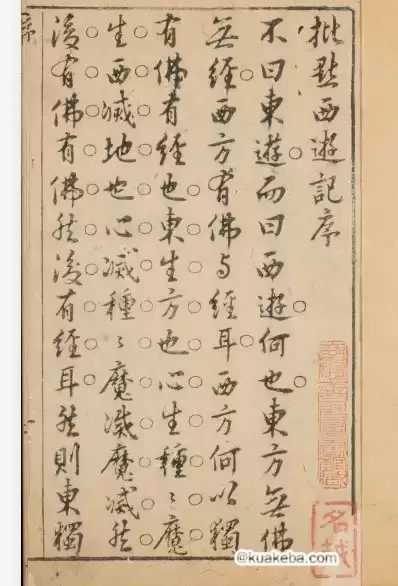 批點西遊記序
不曰東遊而曰西遊何也東方無佛
無經西方有佛与經耳西方何以獨
有佛有經也東生方也心生種〻魔
生西滅地也心滅種〻魔滅魔滅然
後有佛有佛然後有經耳然則東獨
序
@kuakeba.com